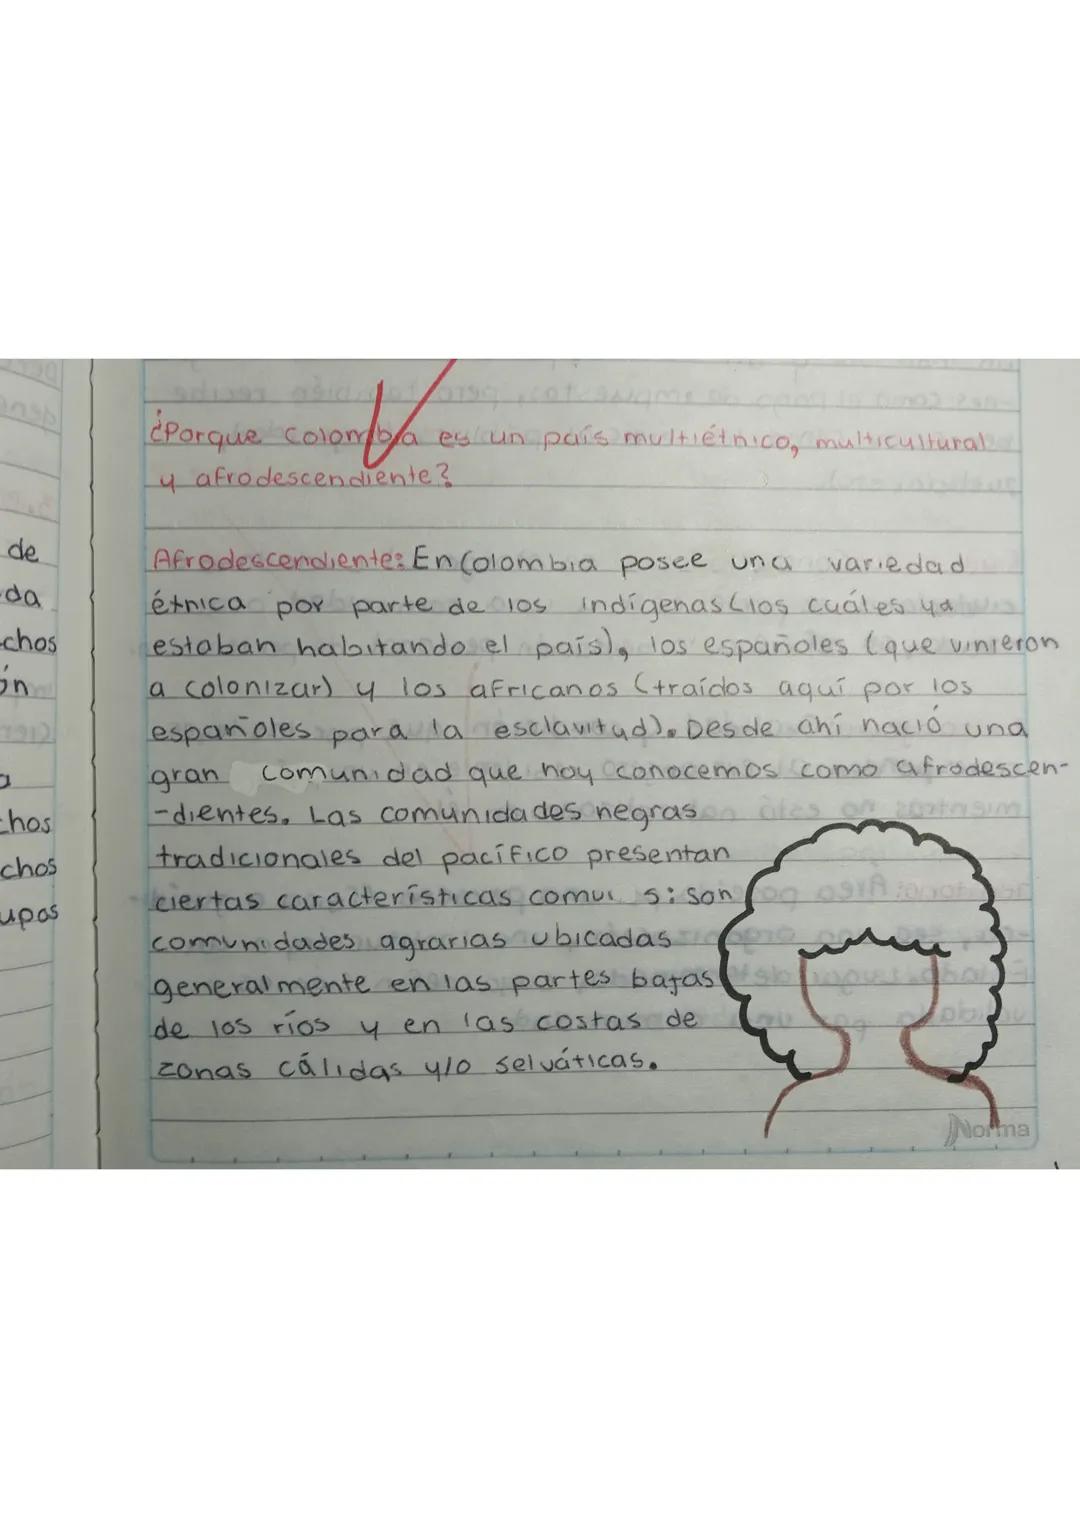 ¿Porque Colombia es un país multiétnico, multicultural
y afrodescendiente?
Afrodescendiente: En Colombia posee una variedad
de
étnica por parte de los indígenas (los cuáles ya
da
estaban habitando el país), los españoles (que vinieron
chos
a colonizar) y los africanos (traídos aquí por los
ón
españoles para la esclavitud). Desde ahí nació una
gran comunidad que hoy conocemos como afrodescen-
a
-dientes. Las comunidades negras
chos
tradicionales del pacífico presentan
chos
ciertas características comu s: son
upos
comunidades agrarias ubicadas
generalmente en las partes bajas
de los ríos y en las costas de
zonas cálidas y/o selváticas.
Norma